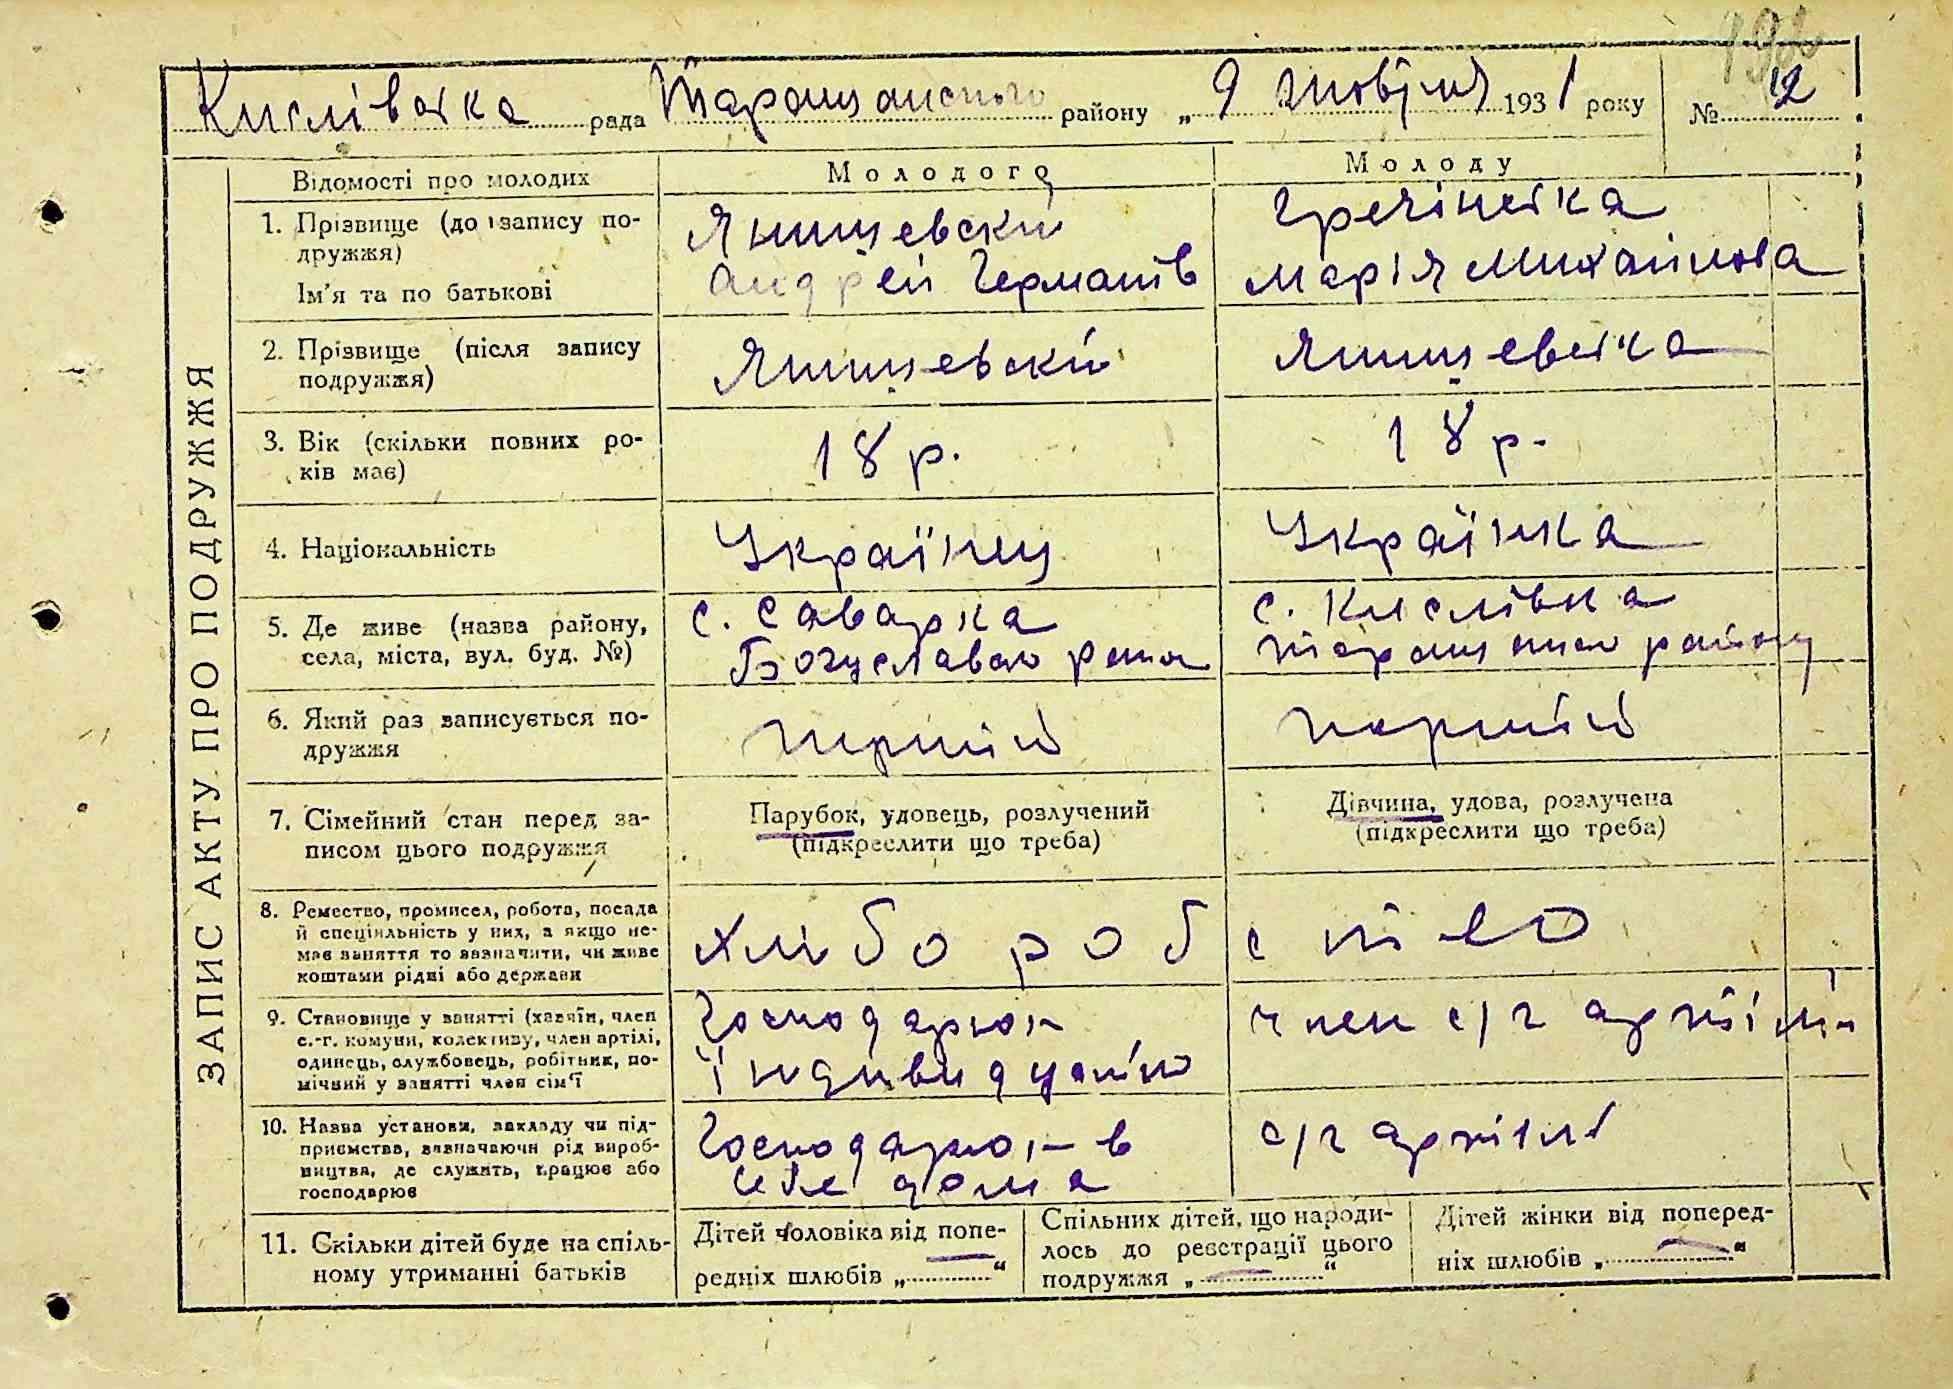 192
Кислівська рада Таращанського району „ 9 жовтня 1931 року № 12
ЗАПИС АКТУ ПРО ПОДРУЖЖЯ
Відомості про молодих
Молодого
Молоду
1. Прізвище (до запису по-
дружжя)
Ім'я та по батькові
Янишевский
Андрей Германів
Гречінська
Марія Михайлова
2. Прізвище (після запису
подружжя)
Янишевский
Янишевська
3. Вік (скільки повних ро-
ків має)
18 р.
18 р.
4. Національність
Українец
Українка
5. Де живе (назва району,
села, міста, вул. буд. №)
с. Саварка
Богуславсько рена
с. Кислівка
Таращансько району
6. Який раз записується по-
дружжя
перший
перший
7. Сімейний стан перед за-
писом цього подружжя
Парубок, удовець, розлучений
(підкреслити що треба)
Дівчина, удова, розлучена
(підкреслити що треба)
8. Ремество, промисел, робота, посада
й спеціяльність у них, а якщо не-
має заняття то зазначити, чи живе
коштами рідні або держави
хлібороб
ство
9. Становище у занятті (хазяїн, член
с.-г. комуни, колективу, член артілі,
одинець, службовець, робітник, по-
мічний у занятті член сім'ї
Господарює
індивидуально
член с/г артілі
10. Назва установи, закладу чи під-
приємства, зазначаючи рід вироб-
ництва, де служить, працює або
господарює
Господарює в
себе дома
с/г артілі
11. Скільки дітей буде на спіль-
ному утриманні батьків
Дітей чоловіка від попе-
редніх шлюбів „ — “
Спільних дітей, що народи-
лось до реєстрації цього
подружжя „ — “
Дітей жінки від поперед-
ніх шлюбів „ — “